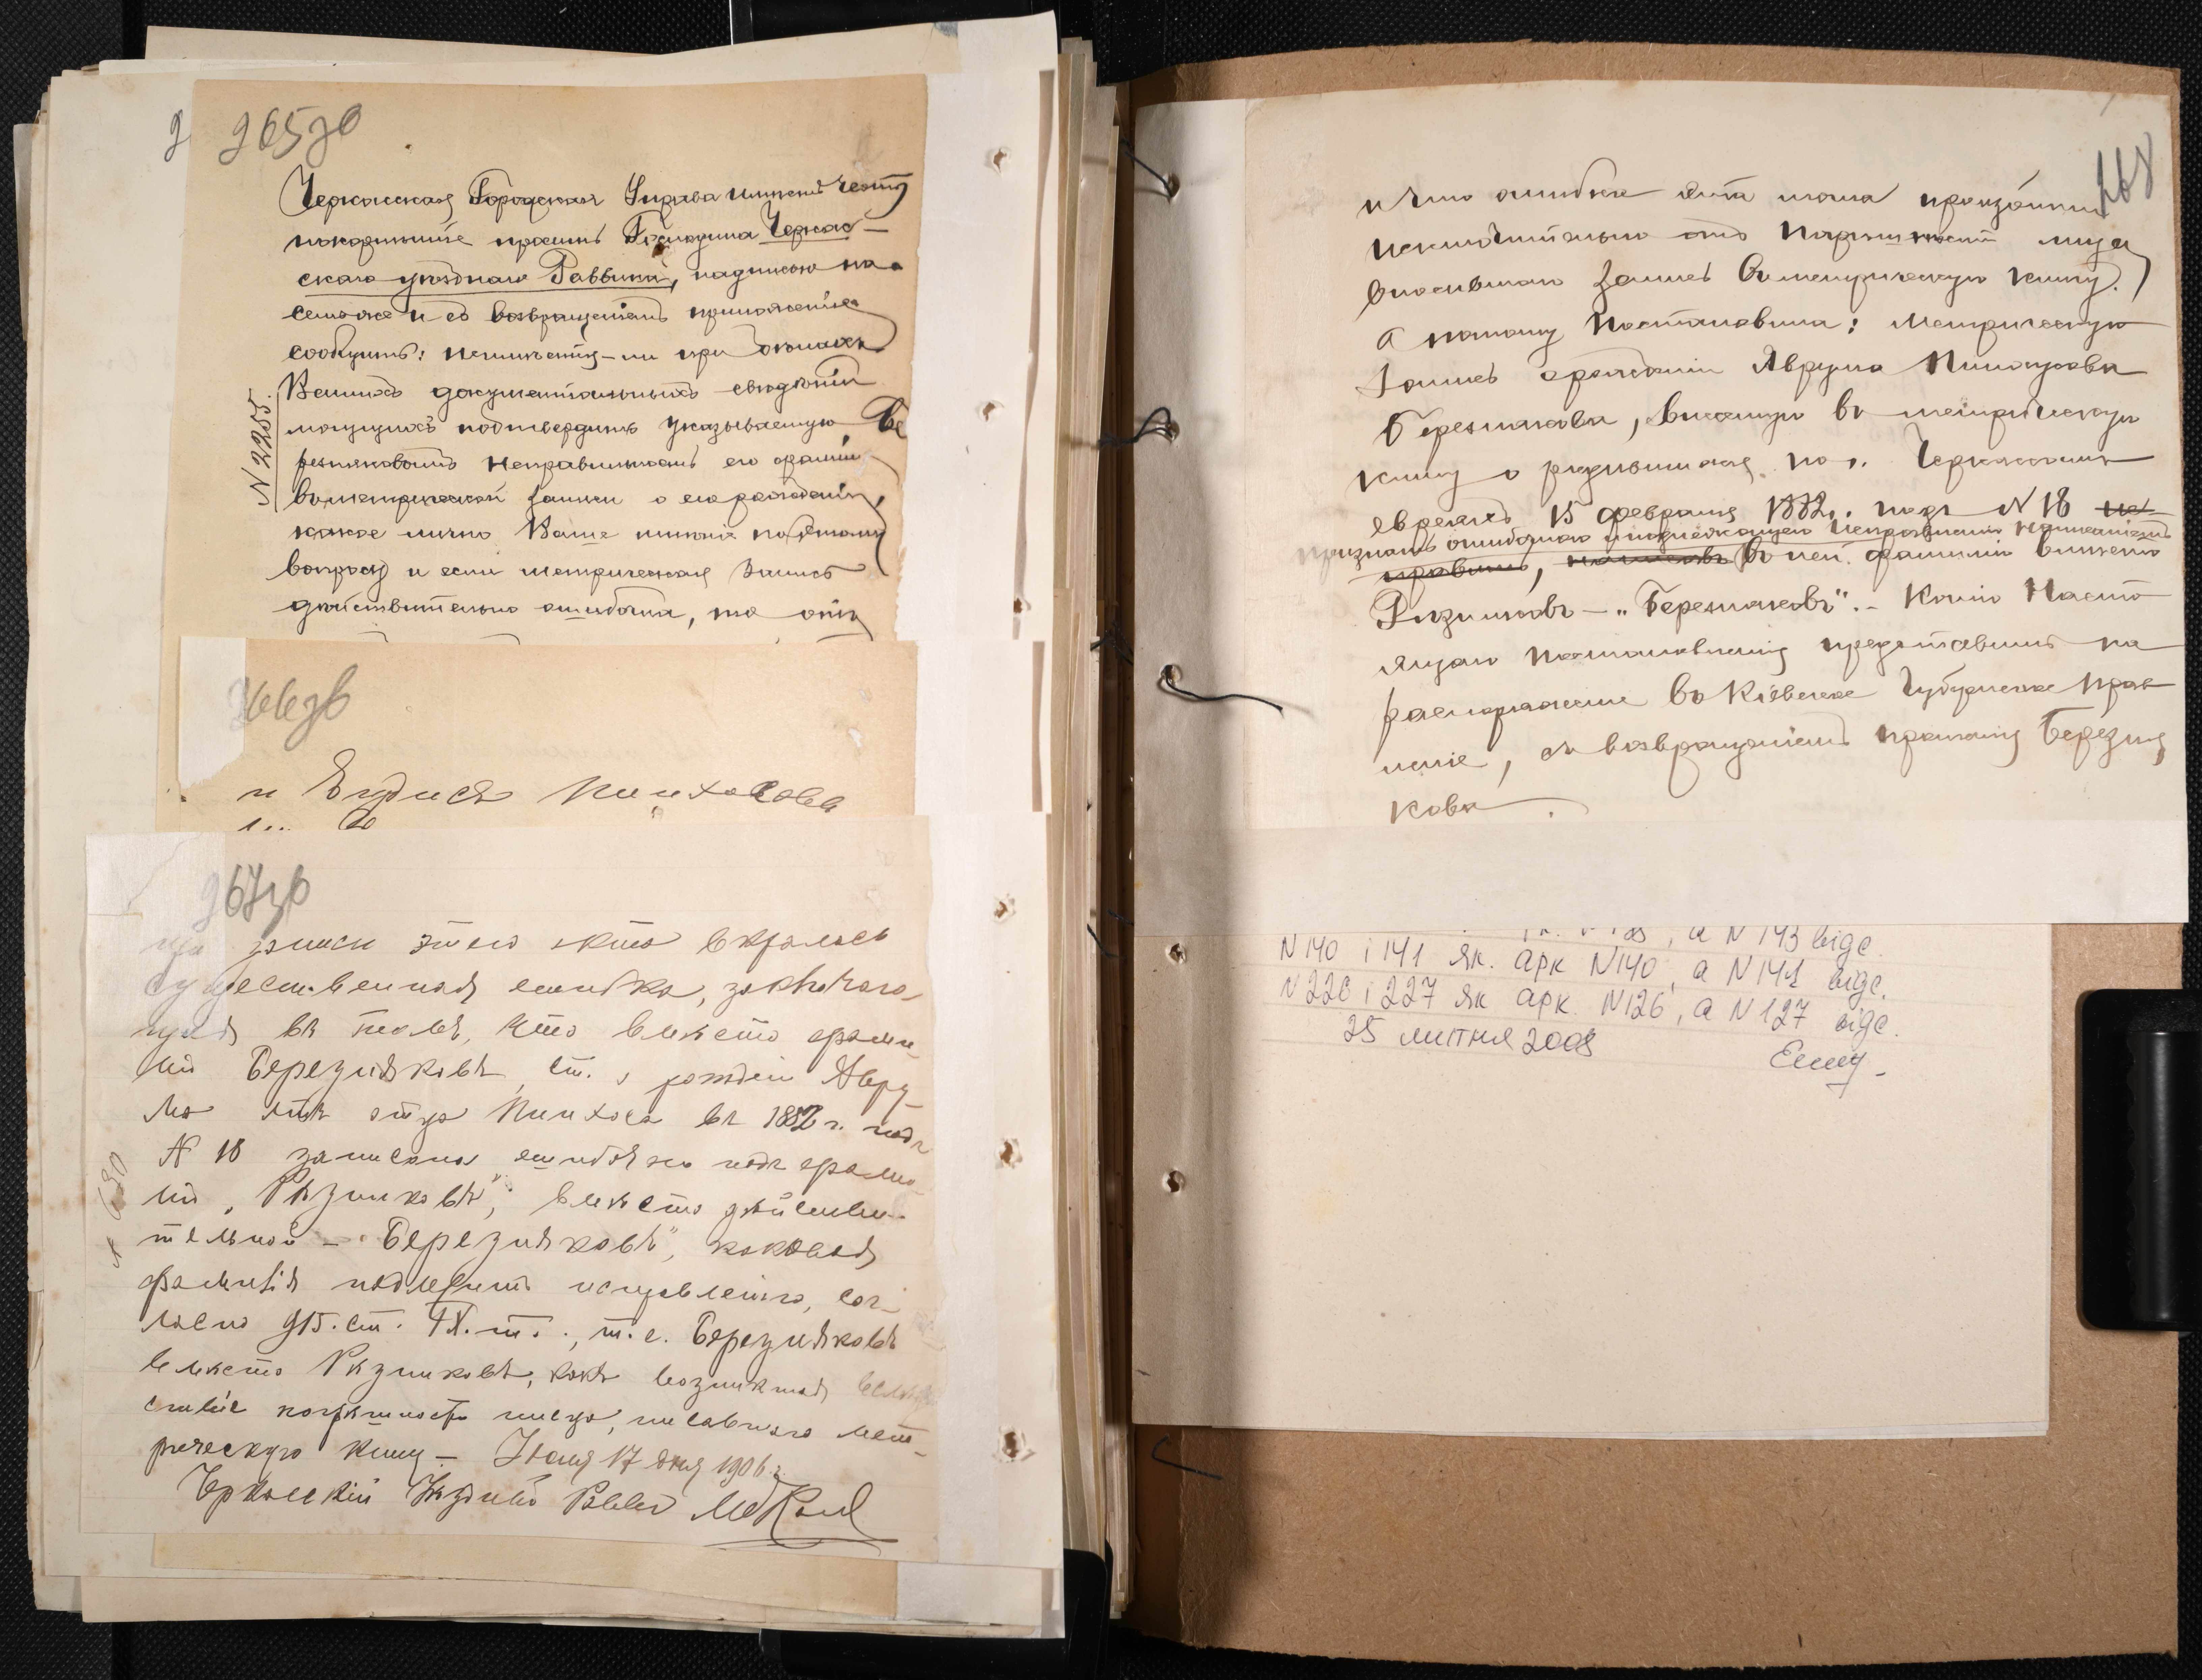 265зв
Черкасская Городская Управа имѣетъ честь
покорнѣйше просить Господина Черкас-
скаго уѣзднаго Раввина, надписью на
семъ же и съ возвращеніемъ приложенія
сообщить: не имѣется-ли при дѣлахъ
Вашихъ документальныхъ свѣдѣній
могущихъ подтвердить указываемую Бе
резняковымъ неправильность его фамиліи
въ метрической записи о его рожденіи,
какое лично Ваше мнѣніе по этому
вопросу и если метрическая запись
дѣйствительно ошибочна, то отъ
N 2255.
266зв
и Ендися Пинхосова
267зв
при записи этого акта вкралась
существенная ошибка, заключаю-
щаяся въ томъ, что вмѣсто фами-
ліи Березняковъ, ст. о рожденіи Авру-
ма отъ отца Пинхоса въ 1882 г. подъ
N 18 записана ошибочно подъ фами-
ліей „Рѣзниковъ", вмѣсто дѣйстви-
тельной – „Березняковъ", каковая
фамилія подлежитъ исправленію, сог-
ласно 915. ст. IX. т., т.е. Березняковъ
вмѣсто Рѣзниковъ, какъ возникшая вслѣд
ствіе погрѣшности писца, писавшаго мет-
рическую книгу – Іюня 17 дня 1906 г.
Черкасскій Уѣздный Раввинъ
268
и что ошибка эта могла произойти
исключительно отъ погрѣшности лица
вносившаго запись въ метрическую книгу.
а потому постановила: Метрическую
запись о рожденіи Аврума Пинхусова
Березнякова, внесенную въ метрическую
книгу о родившихся по г. Черкассамъ
евреяхъ 15 февраля 1882 г. подъ N 18
признать ошибочною и подлежащею исправленію написаніемъ
въ ней фамиліи вмѣсто
Рѣзниковъ – „Березняковъ". – Копію насто
ящаго постановленія представить на
распоряженіе въ Кіевское Губернское Прав
леніе, съ возвращеніемъ прошенія Березня
кова.
а N 143 відс.
N 140 і 141 як. арк N 140, а N 141 відс.
N 226 і 227 як арк. N 126, а N 127 відс.
25 липня 2008